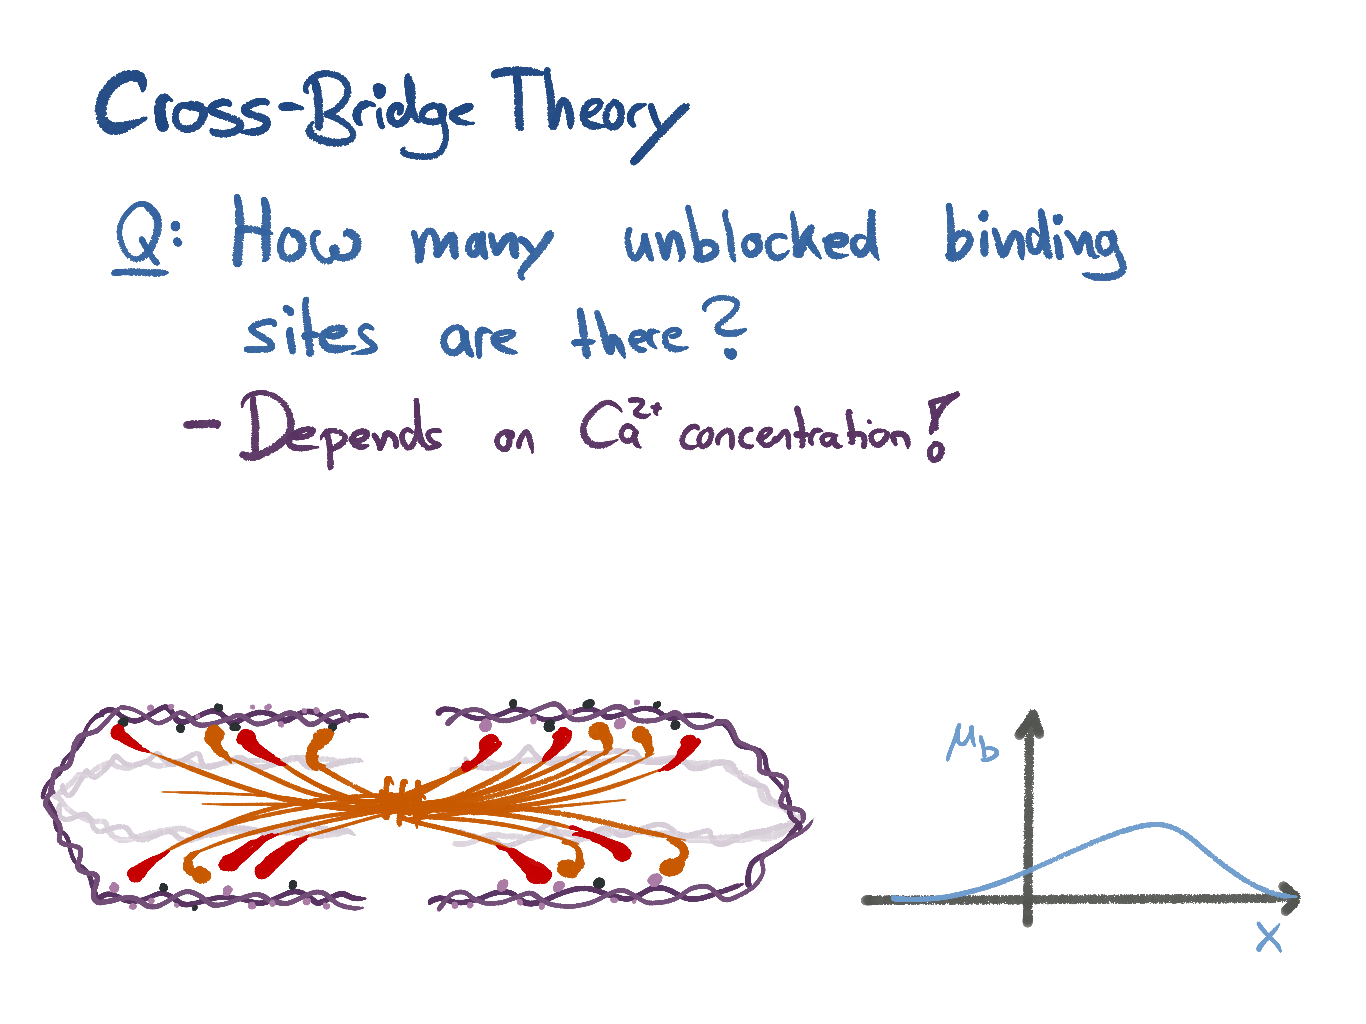 Cross-Bridge Theory
Q: How many unblocked binding
sites are there?
- Depends on Ca²⁺ concentration!
μb
x